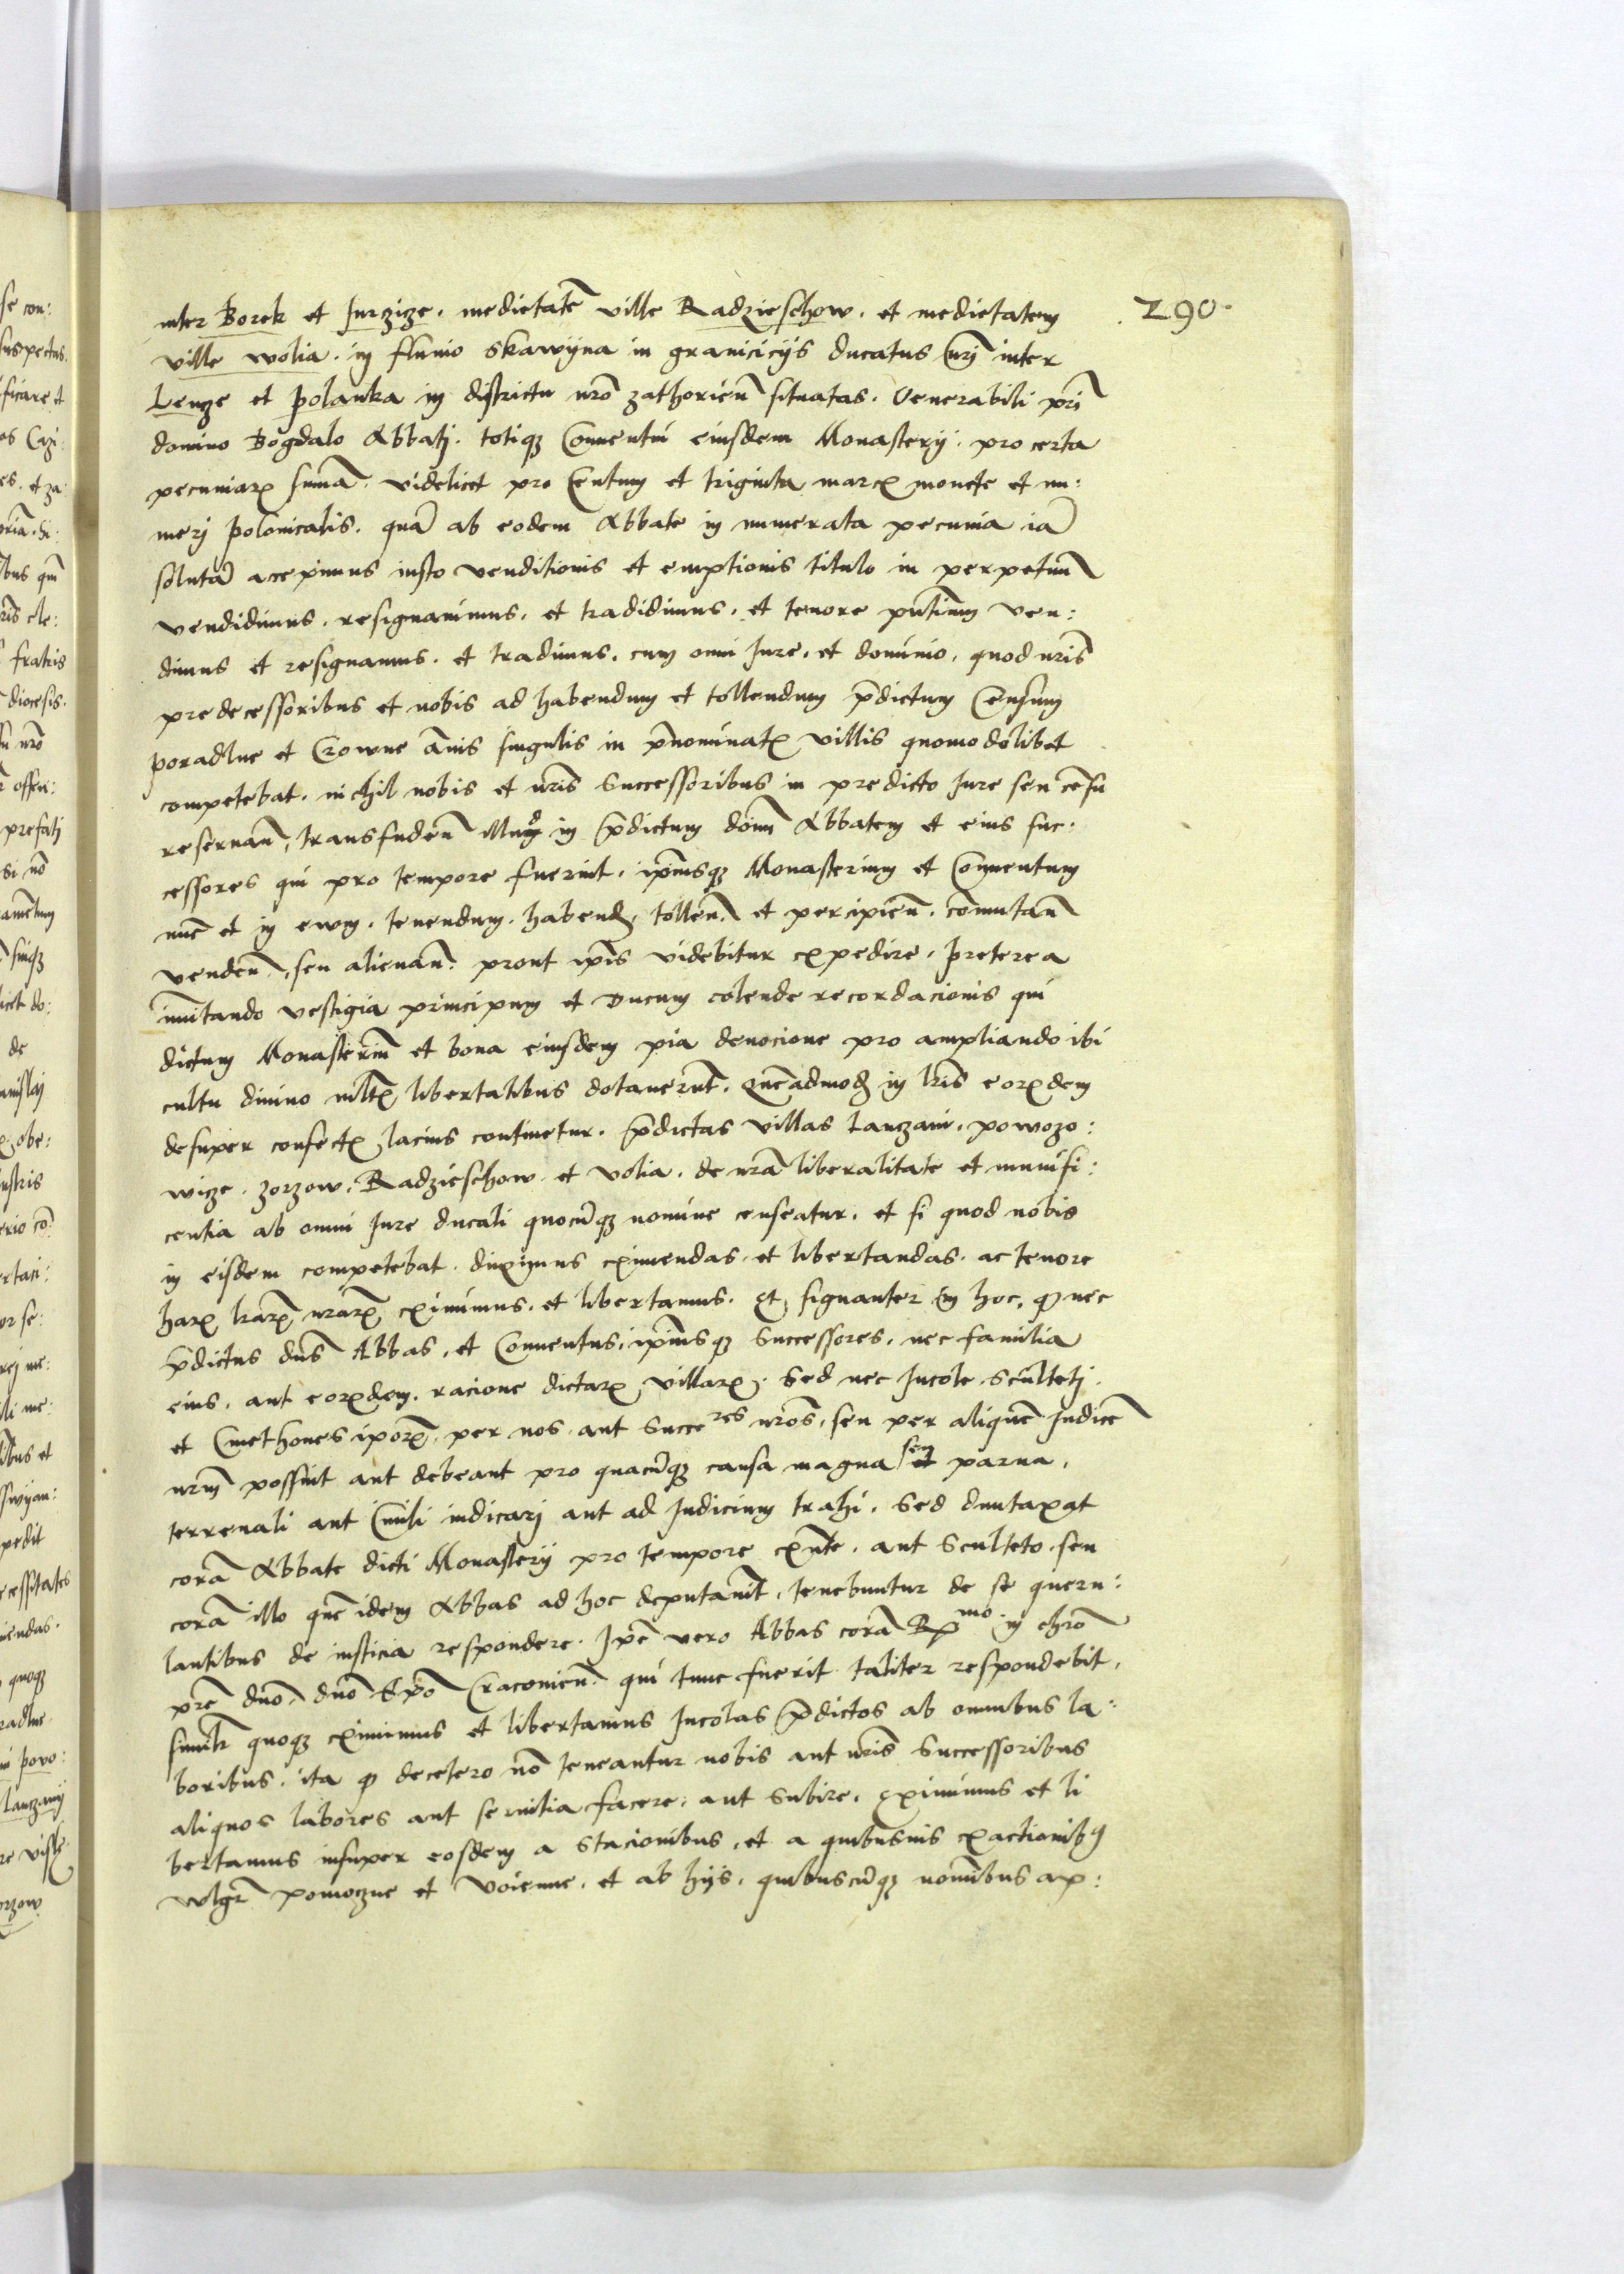 290.
inter Borek et Jurzize. medietatē ville Radzieschow. et medietatem
ville wolia. in fluuio Skawyna in granicicijs ducatus nrj inter
Lencze et Polanka in districtu nr̄o zathorień situatas. Venerabili pr̄i
domino Bogdalo Abbatj. totiqꝫ Conuentui eiusdem Monasterij. pro certa
pecuniarꝝ sum̄a. videlicet pro Centum et triginta marcꝭ monete et nu:
merj polonicalis. quā ab eodem Abbate in numerata pecunia iā
solutā accepimus iusto venditionis et emptionis titulo in perpetuū
vendidimus. resignauimus. et tradidimus. et tenore pn̄tium ven:
dimus et resignamus. et tradimus. cum omni Jure. et dominio. quod nr̄is
predecessoribus et nobis ad habendum et tollendum p̄dictum Censum
poradlne et Crowne an̄is singulis in p̄nominatꝭ villis quomodolibet
competebat. nichil nobis et nr̄is Successoribus in predicto Jure seu cēsu
reseruan̄, transfuden̄ illud in p̄dictum dōm̄ Abbatem et eius suc:
cessores qui pro tempore fuerint. ip̄iusqꝫ Monasterium et Conuentum
nūc et in ewm. tenendum. habend. tollen̄. et percipien̄. com̄utan̄
venden̄. seu alienan̄. prout ip̄is videbitur expedire. Preterea
imitando vestigia principum et Ducum colende recordacionis qui
dictum Monasteriū et bona eiusdem pia deuocione pro ampliando ibi
cultu diuino mltꝭ libertatibus dotauerūt. Quēadmod in lr̄is eorꝝdem
desuper confectꝭ lacius continetur. p̄dictas villas Lanczani. powozo:
wicze. zorzow. Radzieschow et volia. de nr̄a liberalitate et munifi:
centia ab omni Jure ducali quocūqꝫ nomine censeatur. et si quod nobis
in eisdem competebat. duximus eximendas. et libertandas. ac tenore
harꝝ lr̄arꝝ nr̄arꝝ eximimus. et libertamus. Et signanter in hoc. ꝙ nec
p̄dictus dn̄s Abbas, et Conuentus, ip̄iusqꝫ Successores. nec familia
eius. aut eorꝝdem. racione dictarꝝ villarꝝ. Sed nec Jncole Scultetj.
et Cmethones ip̄orꝝ. per nos aut Succeres nr̄os. seu per aliquē Judicē
nr̄m possint aut debeant pro quacūqꝫ causa magna seu parua.
terrenali aut Ciuili iudicarj aut ad Judicium trahi. Sed duntaxat
corā Abbate dicti Monasterij pro tempore exn̄te. aut Sculteto. seu
corā illo quē idem Abbas ad hoc deputauit. tenebuntur de se queru:
lantibus de iusticia respondere. Jp̄e vero Abbas corā Rmo in chr̄o
pr̄e dn̄o. dn̄o Ep̄o Cracouien̄. qui tunc fuerit taliter respondebit.
simili quoqꝫ eximimus et libertamus Jncolas p̄dictos ab omnibus la:
boribus. ita ꝙ decetero nō teneantur nobis aut nr̄is Successoribus
aliquos labores aut seruitia facere. aut Subire. eximimus et li
bertamus insuper eosdem a Stacionibus. et a quibusuis exactionibꝰ
wlgr̄ pomoczne et voienne. et ab hijs. quibuscūqꝫ nominibus ap: